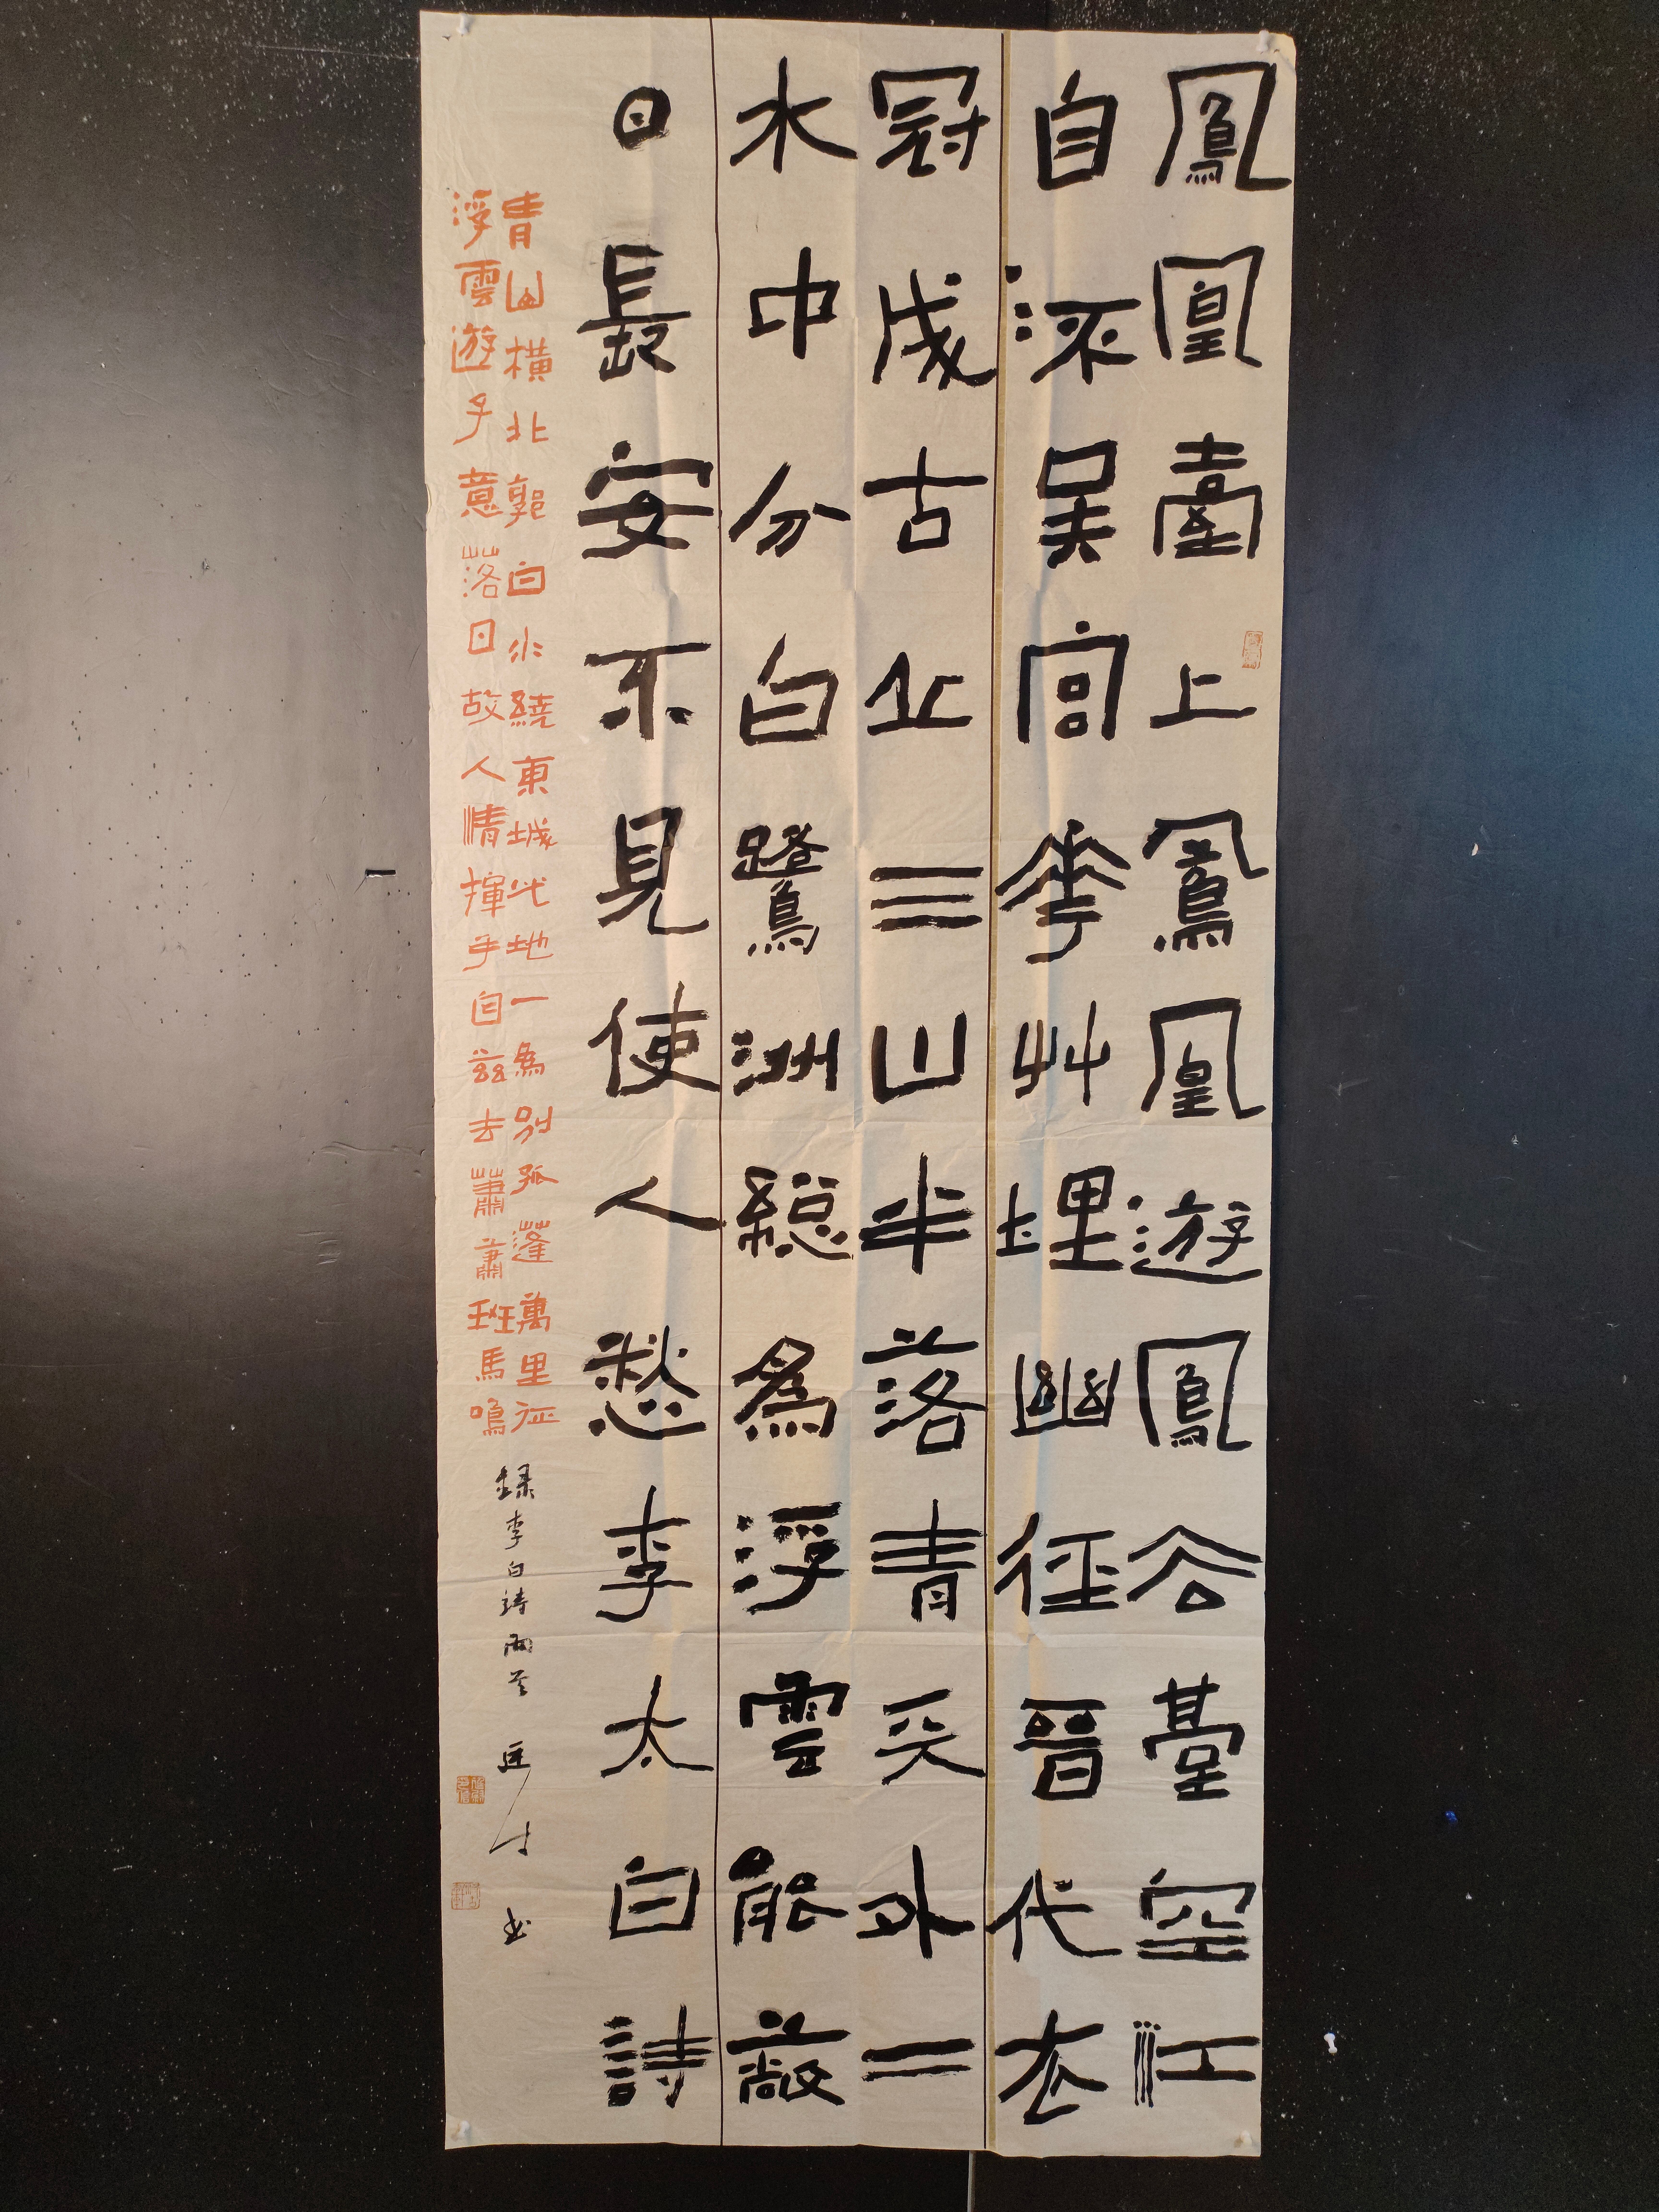 鳳凰臺上鳳凰遊鳳去臺空江
自流吳宮花艸埋幽徑晉代衣
冠成古丘三山半落青天外二
水中分白鷺洲總為浮雲能蔽
日長安不見使人愁李太白詩
青山橫北郭白水繞東城此地一為別孤蓬萬里征
浮雲遊子意落日故人情揮手自茲去蕭蕭班馬鳴
錄李白詩兩首